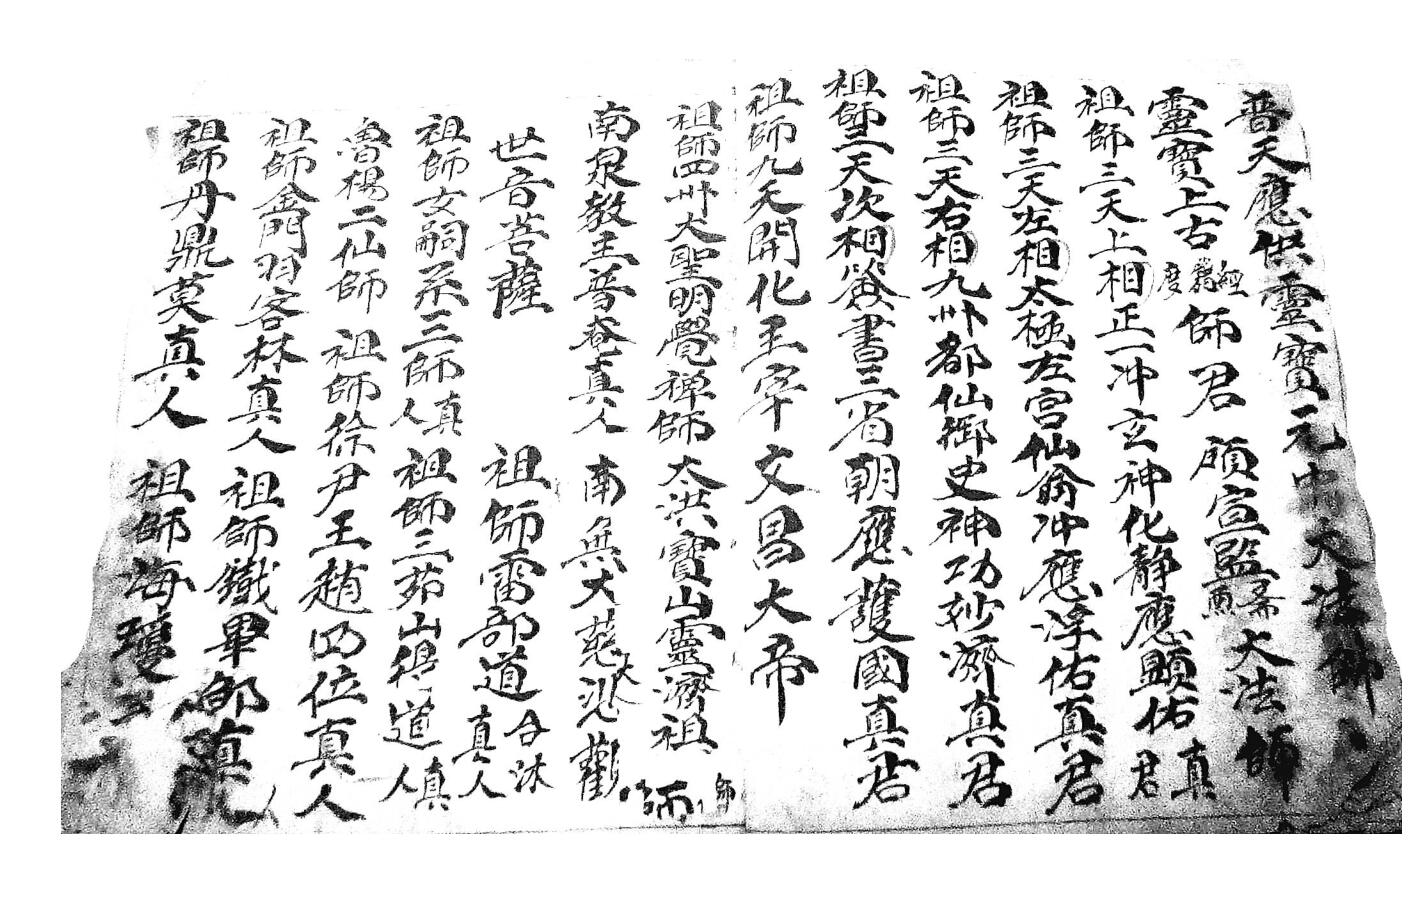 普天應供靈寶元中大法師
靈寶上古經籍度師君 頋宣監斋大法師
祖師三天上相正一冲玄神化靜應顯佑真君
祖師三天左相太極左宮仙翁冲應浮佑真君
祖師三天右相九州都仙御史神功妙濟真君
祖師三天次相簽書三省朝應護國真君
祖師九天開化主宰文昌大帝
祖師四州大聖明覺禅師 太洪寶山靈濟祖師
南泉教主普菴真人 南無大慈大悲觀
世音菩薩 祖師雷部道合沐真人
祖師女嗣系三師真人 祖師三茆山得道真人
魯楊二仙師 祖師徐尹王趙四位真人
祖師金門羽客林真人 祖師鐵畢鄧
祖師丹鼎莫真人 祖師海瓊